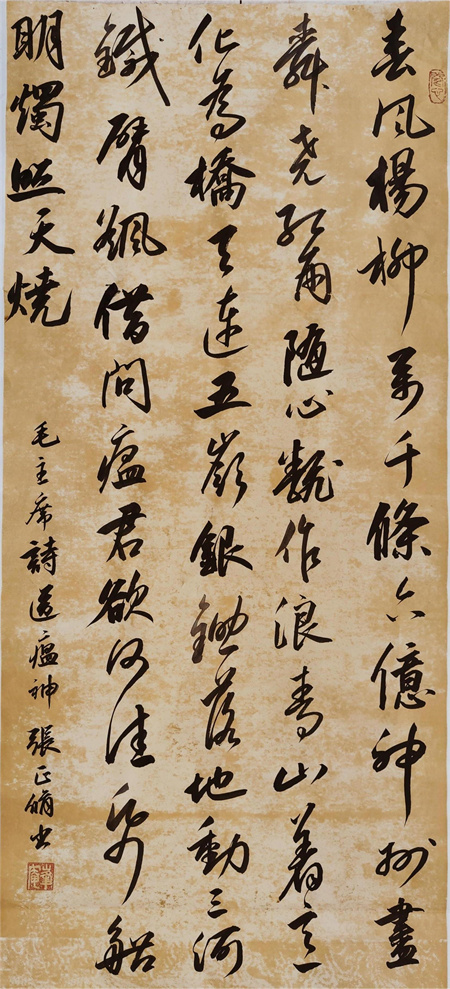 春風楊柳萬千條六億神州盡
舜堯紅雨隨心翻作浪青山着意
化為橋天連五嶺銀鋤落地動三河
鐵臂颻借問瘟君欲何往紙船
明燭照天燒
毛主席詩送瘟神 張正書